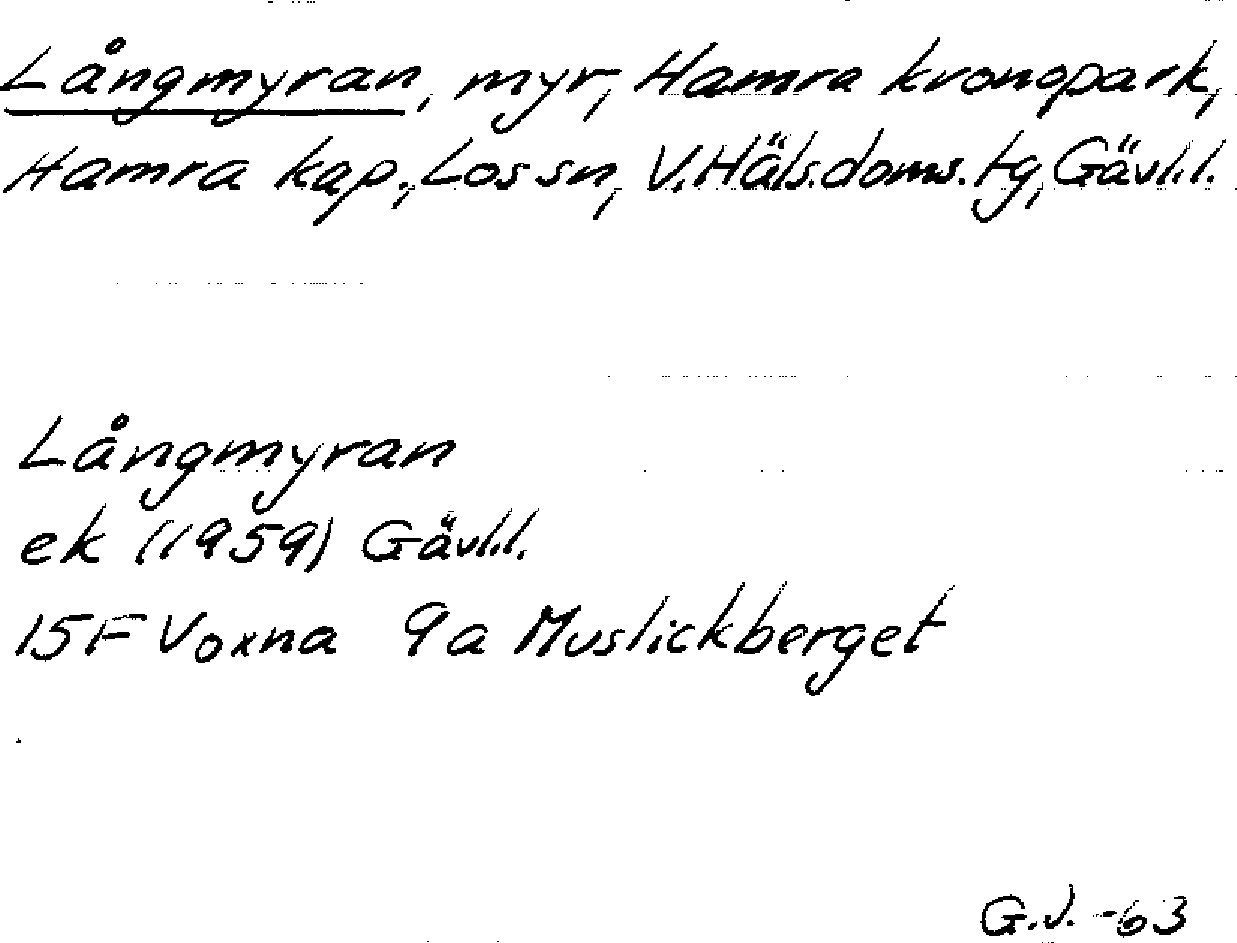 Långmyran, myr, Hamra kronopark,
Hamra kap., Los sn, V. Häls. doms. tg, Gävl.l.
Långmyran
ek (1959) Gävl.l.
15F Voxna 9a Muslickberget
G.J. -63